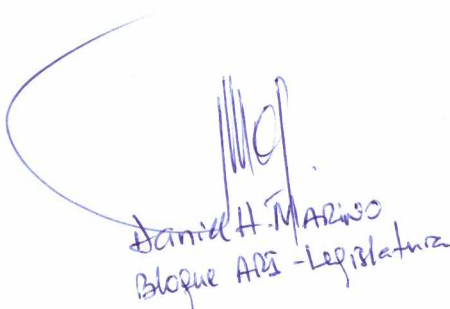 Daniel H. MARINO
Bloque ARI - Legislatura